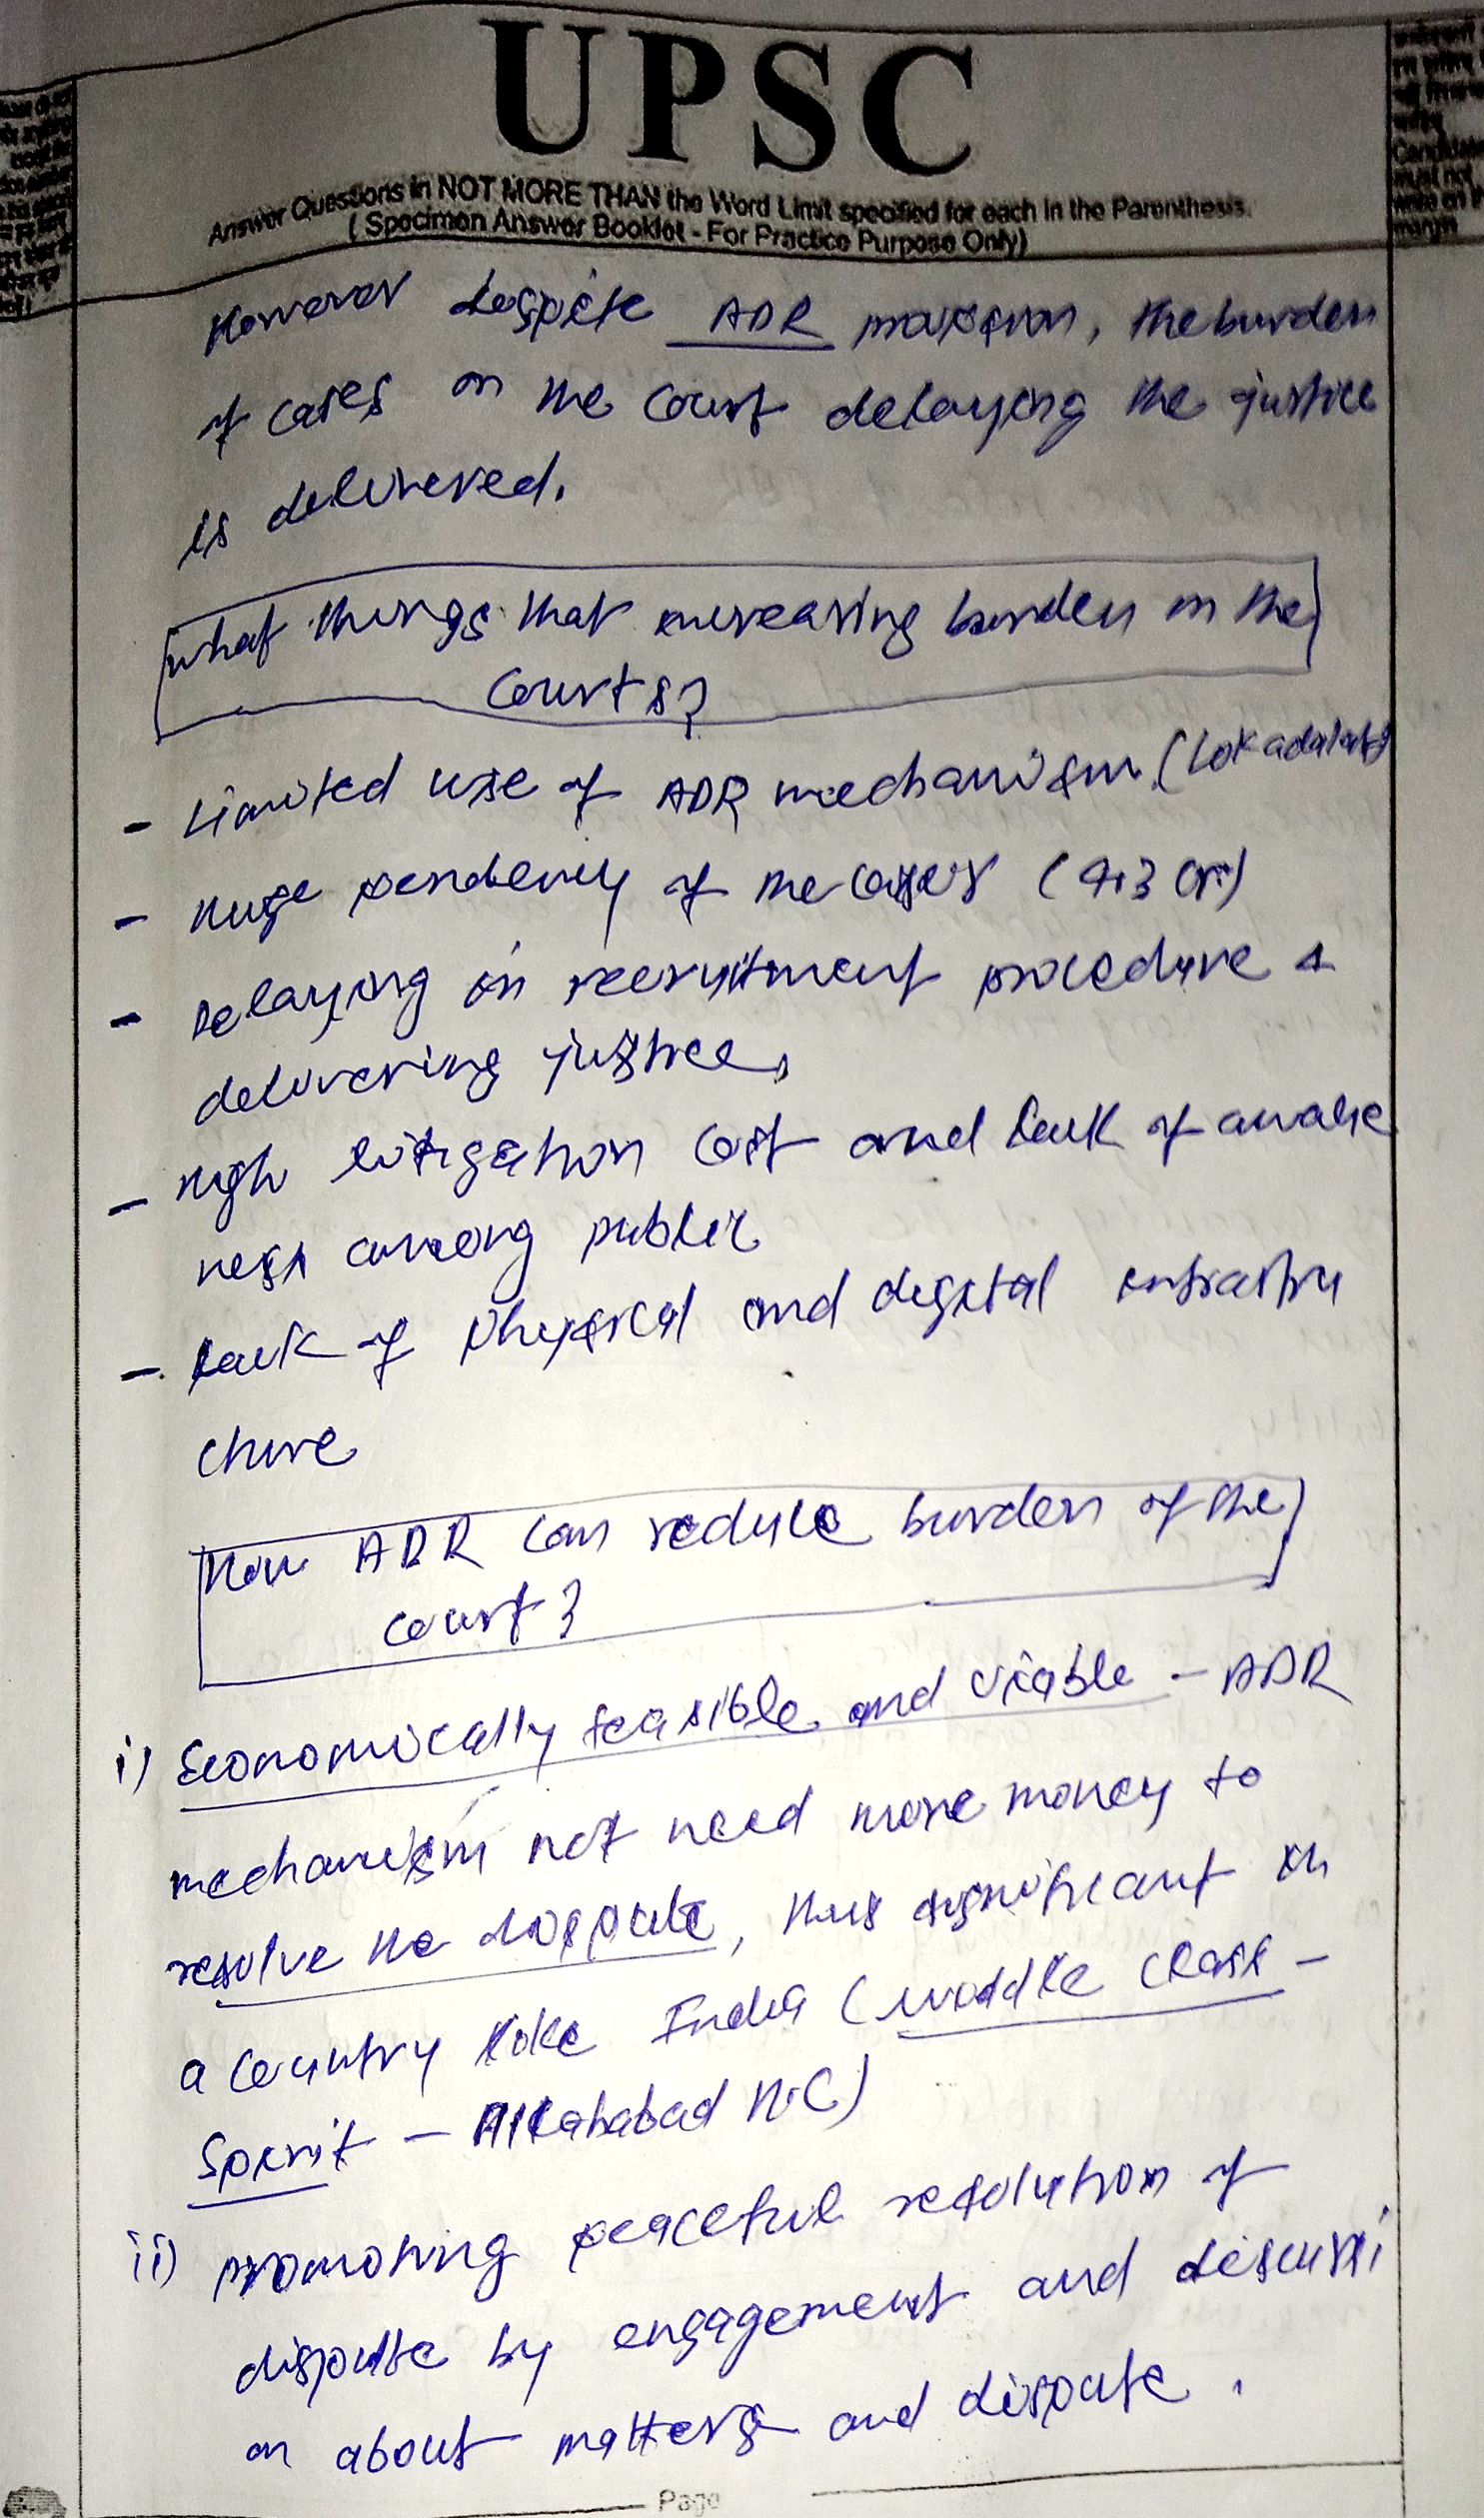 UPSC
Answer Questions in NOT MORE THAN the Word Limit specified for each in the Parenthesis.
( Specimen Answer Booklet - For Practice Purpose Only)
Candidates
must not
write on
margin
However despite ADR, the burden
of cases on the Court delaying the justice
is delivered.
What things that increasing burden on the
Courts?
- Limited use of ADR mechanism (Lok adalats)
- Huge pendency of the cases (4.3 Cr.)
- Delaying in recruitment procedure &
delivering justice,
- High litigation cost and lack of aware
ness among public
- Lack of Physical and digital infrastru
cture
How ADR can reduce burden of the
court?
i) Economically feasible and viable - ADR
mechanism not need more money to
resolve the dispute, thus significant in
a country like India (middle class -
Spirit - Allahabad H.C)
ii) promoting peaceful resolution of
dispute by engagement and discussi
on about matters and dispute.
Page